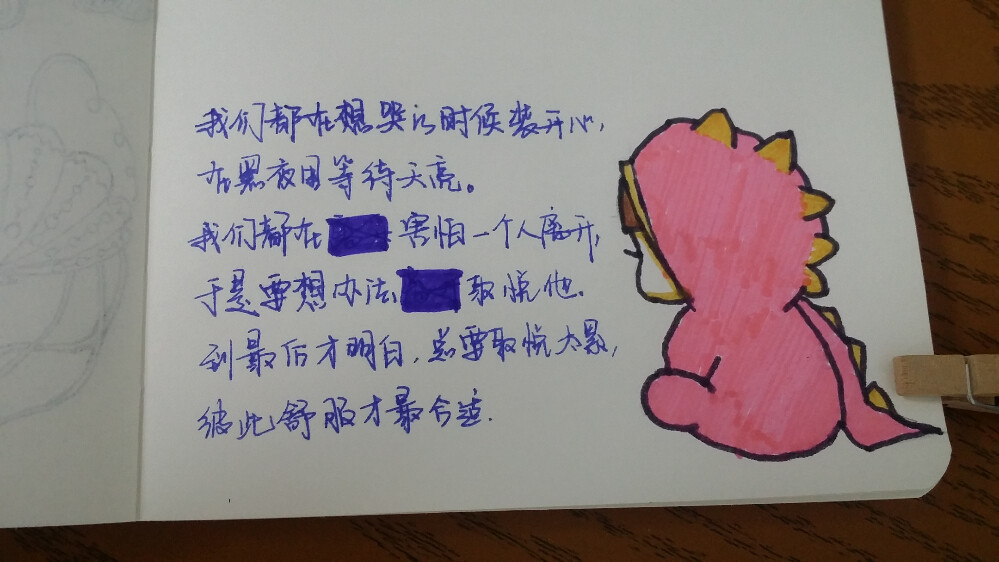 我们都在想哭的时候装开心,
在黑夜里等待天亮。
我们都在 害怕一个人离开,
于是要想办法 取悦他.
到最后才明白,总要取悦太累,
彼此舒服才最合适.